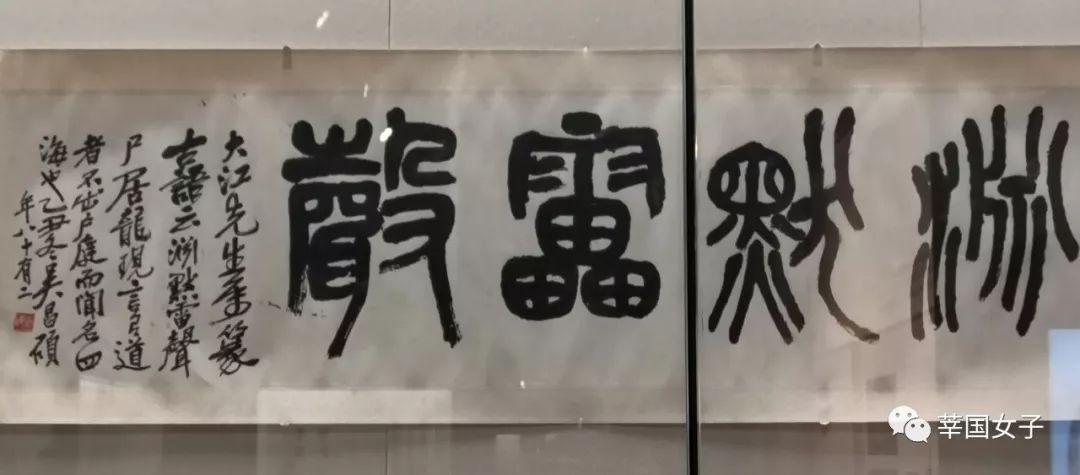 淵默雷聲
大江先生屬篆
古語云淵默雷聲
尸居龍現言有道
者不出戶庭而聞名四
海也乙丑冬吳昌碩
年八十有二
莘国女子